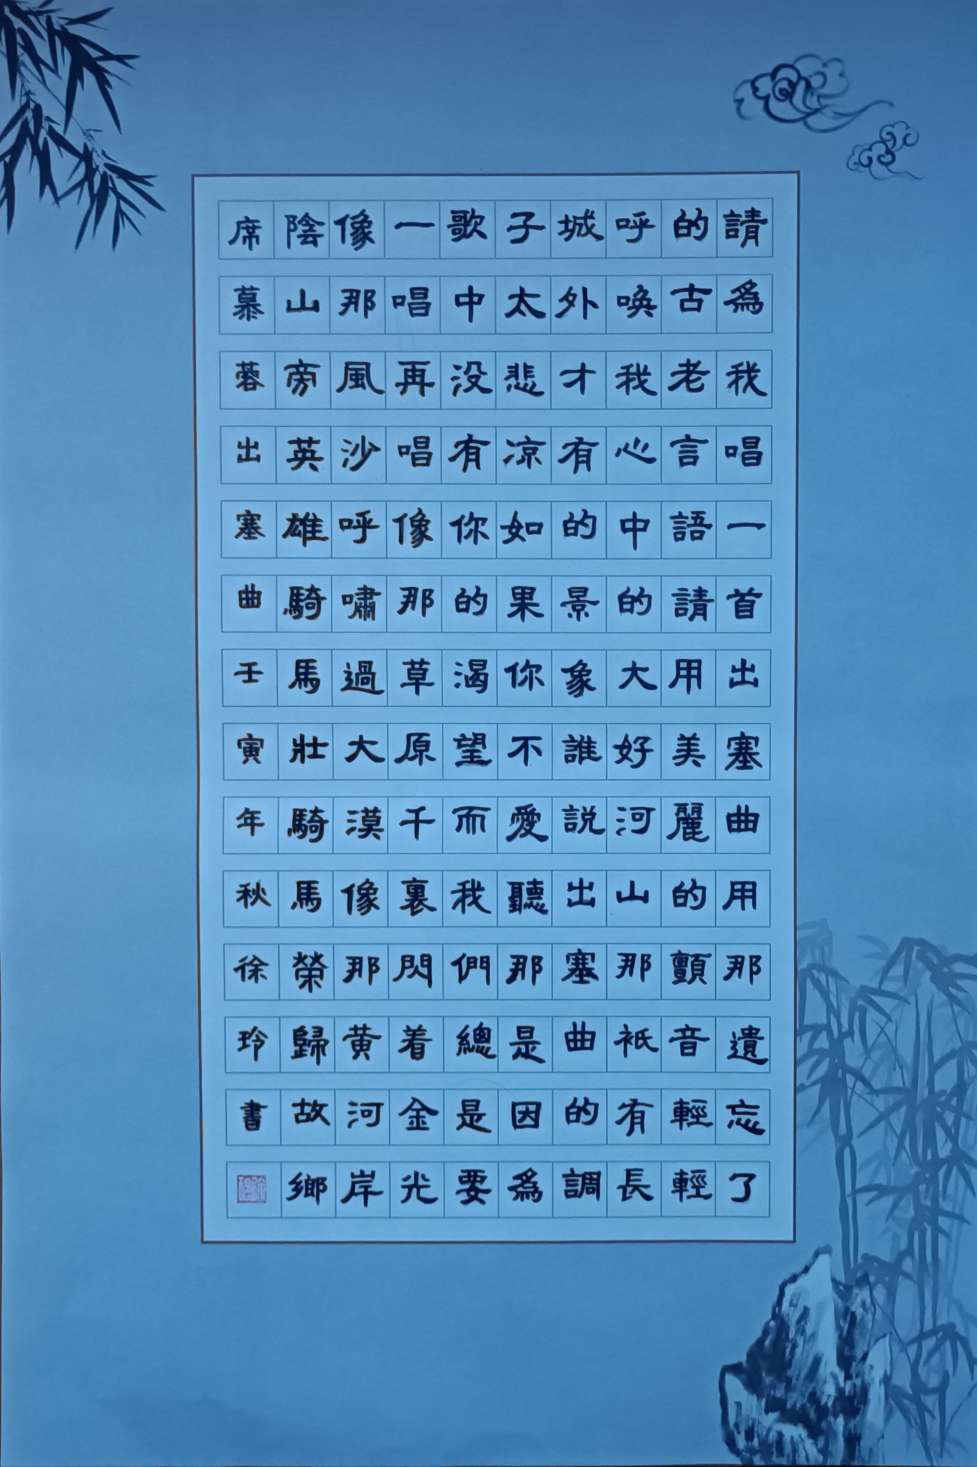 請爲我唱一首出塞曲用那遺忘了
的古老言語請用美麗的顫音輕輕
呼喚我心中的大好河山那衹有長
城外才有的景象誰説出塞曲的調
子太悲凉如果你不愛聽那是因爲
歌中没有你的渴望而我們總是要
一唱再唱像那草原千裏閃着金光
像那風沙呼嘯過大漠像那黄河岸
陰山旁英雄騎馬壯騎馬榮歸故鄉
席慕蓉出塞曲壬寅年秋徐玲書